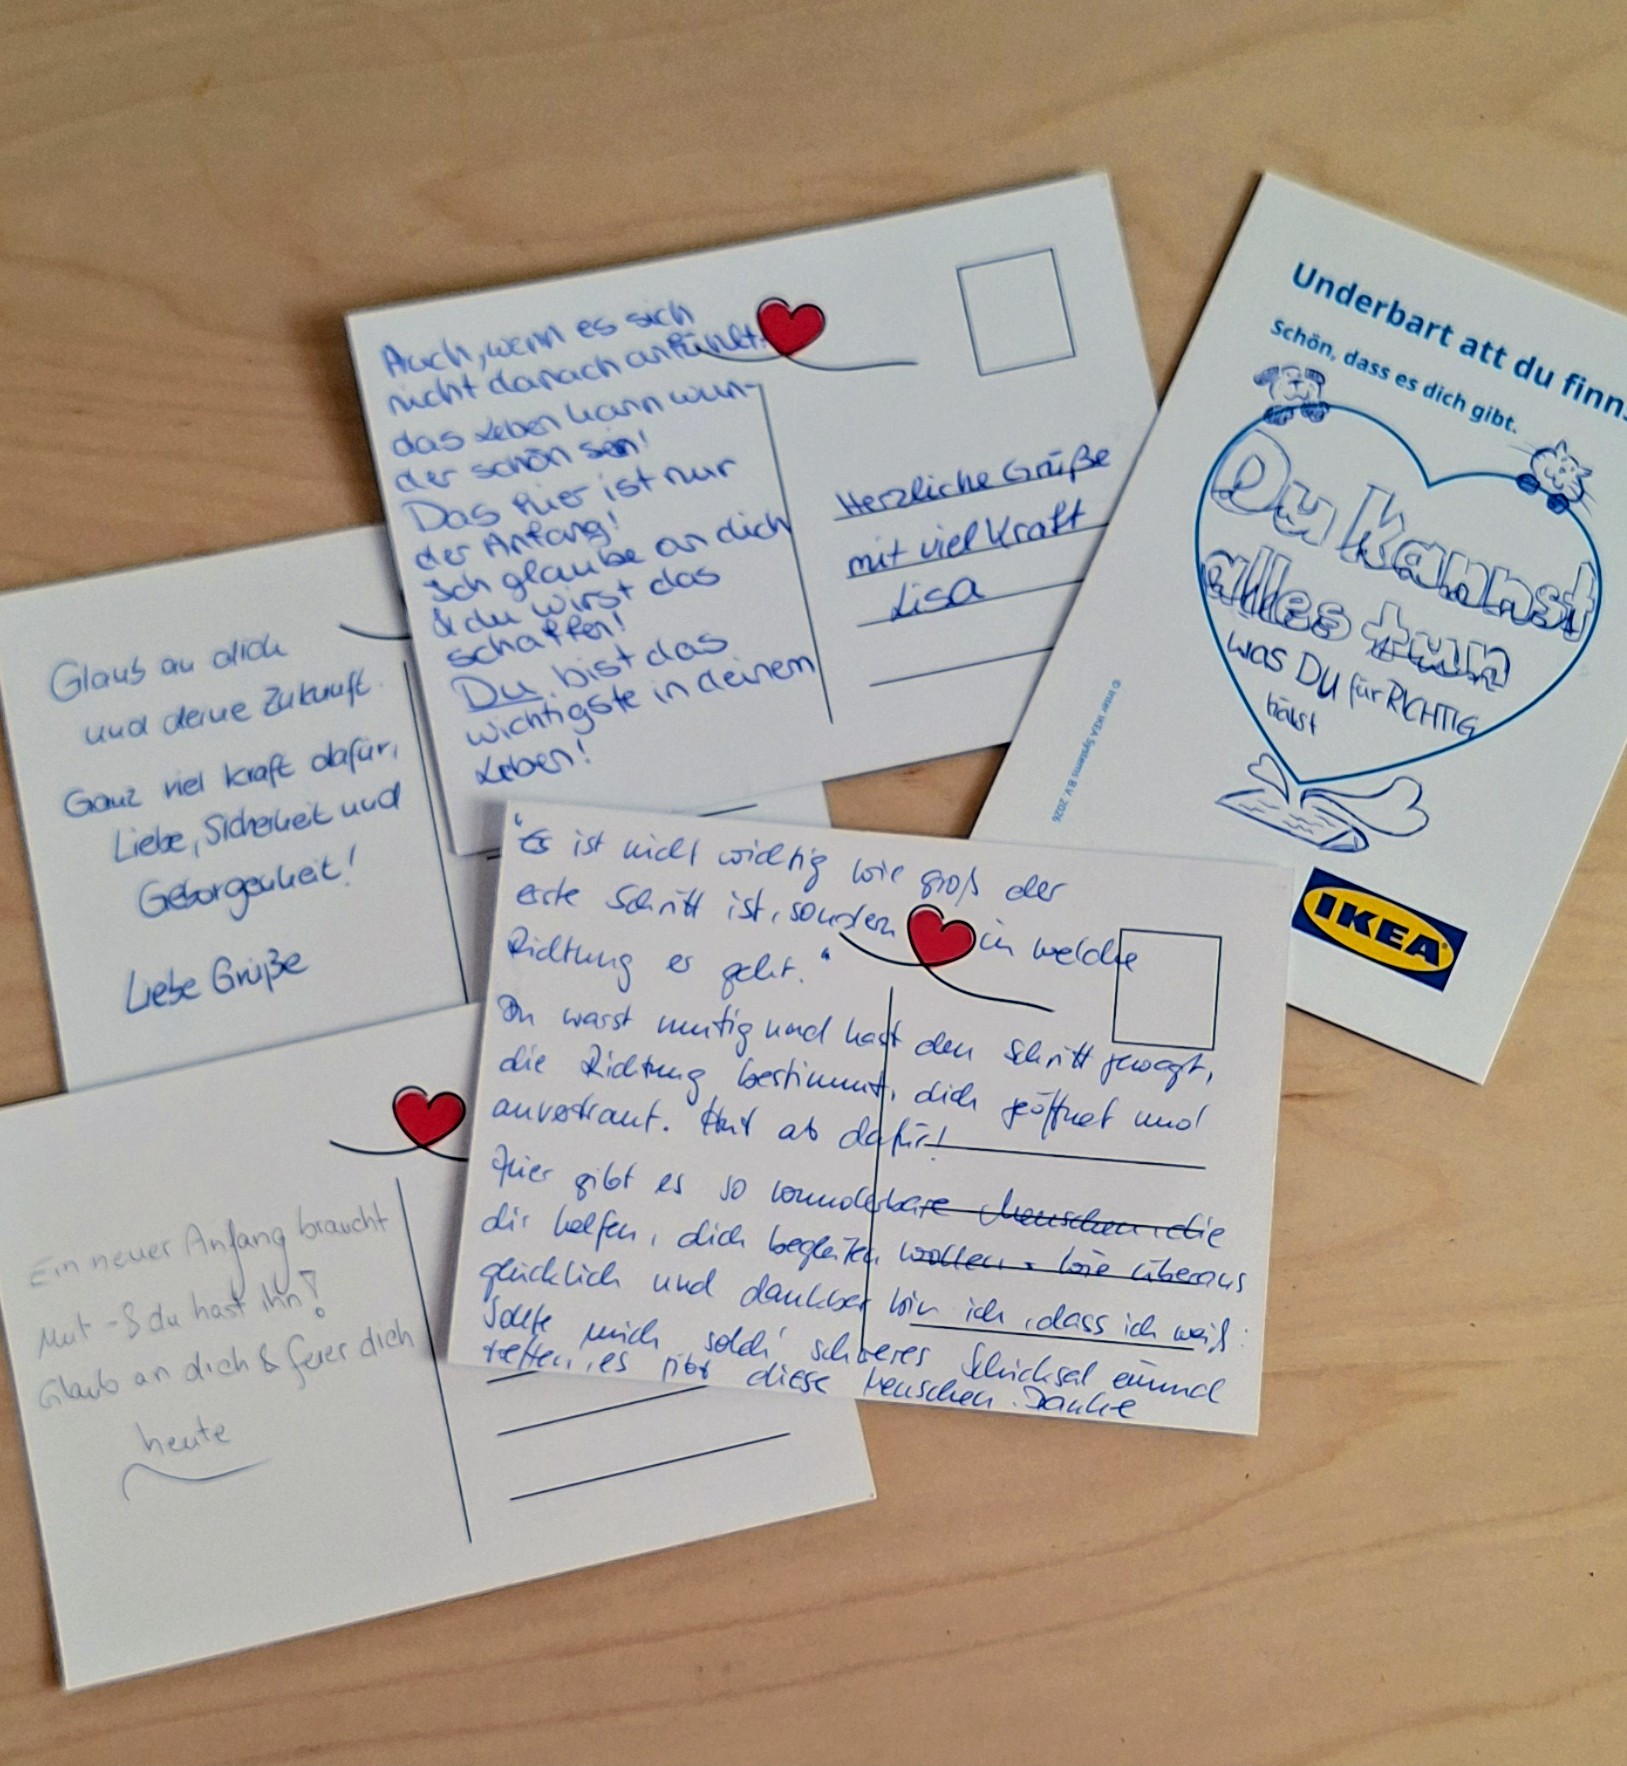 Auch, wenn es sich
nicht danach anfühlt:
das Leben kann wun-
der schön sein!
Das hier ist nur
der Anfang!
Ich glaube an dich
& du wirst das
schaffen!
Du bist das
wichtigste in deinem
Leben!
Herzliche Grüße
mit viel Kraft
Lisa
Underbart att du finns
Schön, dass es dich gibt.
Du kannst
alles tun
was DU für RICHTIG
hälst
© Inter IKEA Systems B.V. 2026
IKEA
Glaub an dich
und deine Zukunft.
Ganz viel Kraft dafür,
Liebe, Sicherheit und
Geborgenheit!
Liebe Grüße
"Es ist nicht wichtig wie groß der
erste Schritt ist, sondern in welche
Richtung er geht."
Du warst mutig und hast den Schritt gewagt,
die Richtung bestimmt, dich geöffnet und
anvertraut. Hut ab dafür!
Hier gibt es so wunderbare Menschen, die
dir helfen, dich begleiten wollen. Wie überaus
glücklich und dankbar bin ich, dass ich weiß:
Sollte mich solch' schweres Schicksal einmal
treffen, es gibt diese Menschen. Danke
Ein neuer Anfang braucht
Mut - & du hast ihn!
Glaub an dich & feier dich
heute